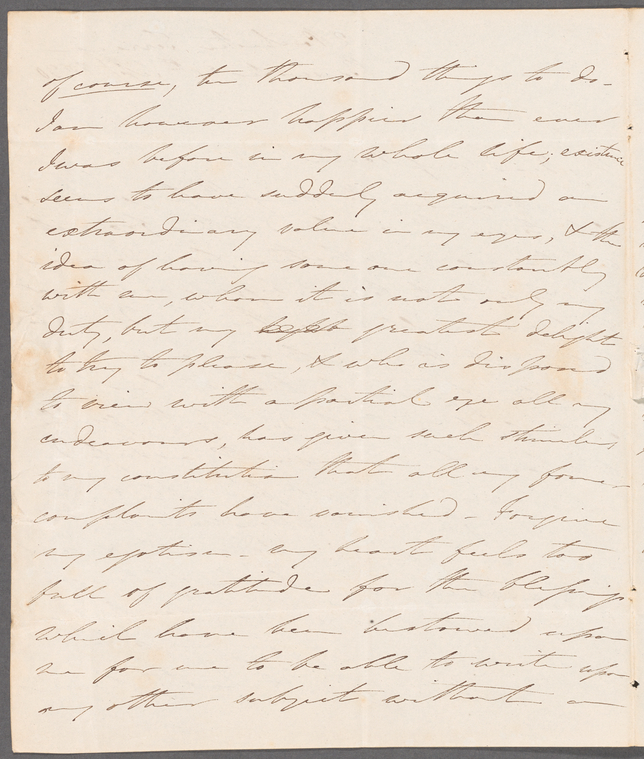 of course, ten thousand things to do -
I am however happier than ever
I was before in my whole life; existence
seems to have suddenly acquired an
extraordinary value in my eyes, & the
idea of having some one constantly
with me, whom it is not only my
duty, but my greatest delight
to try to please, & who is disposed
to view with a partial eye all my
endeavours, has given such stimulus
to my constitution that all my former
complaints have vanished - Forgive
my egotism - my heart feels too
full of gratitude for the blessings
which have been bestowed upon
me for me to be able to write upon
any other subject without an